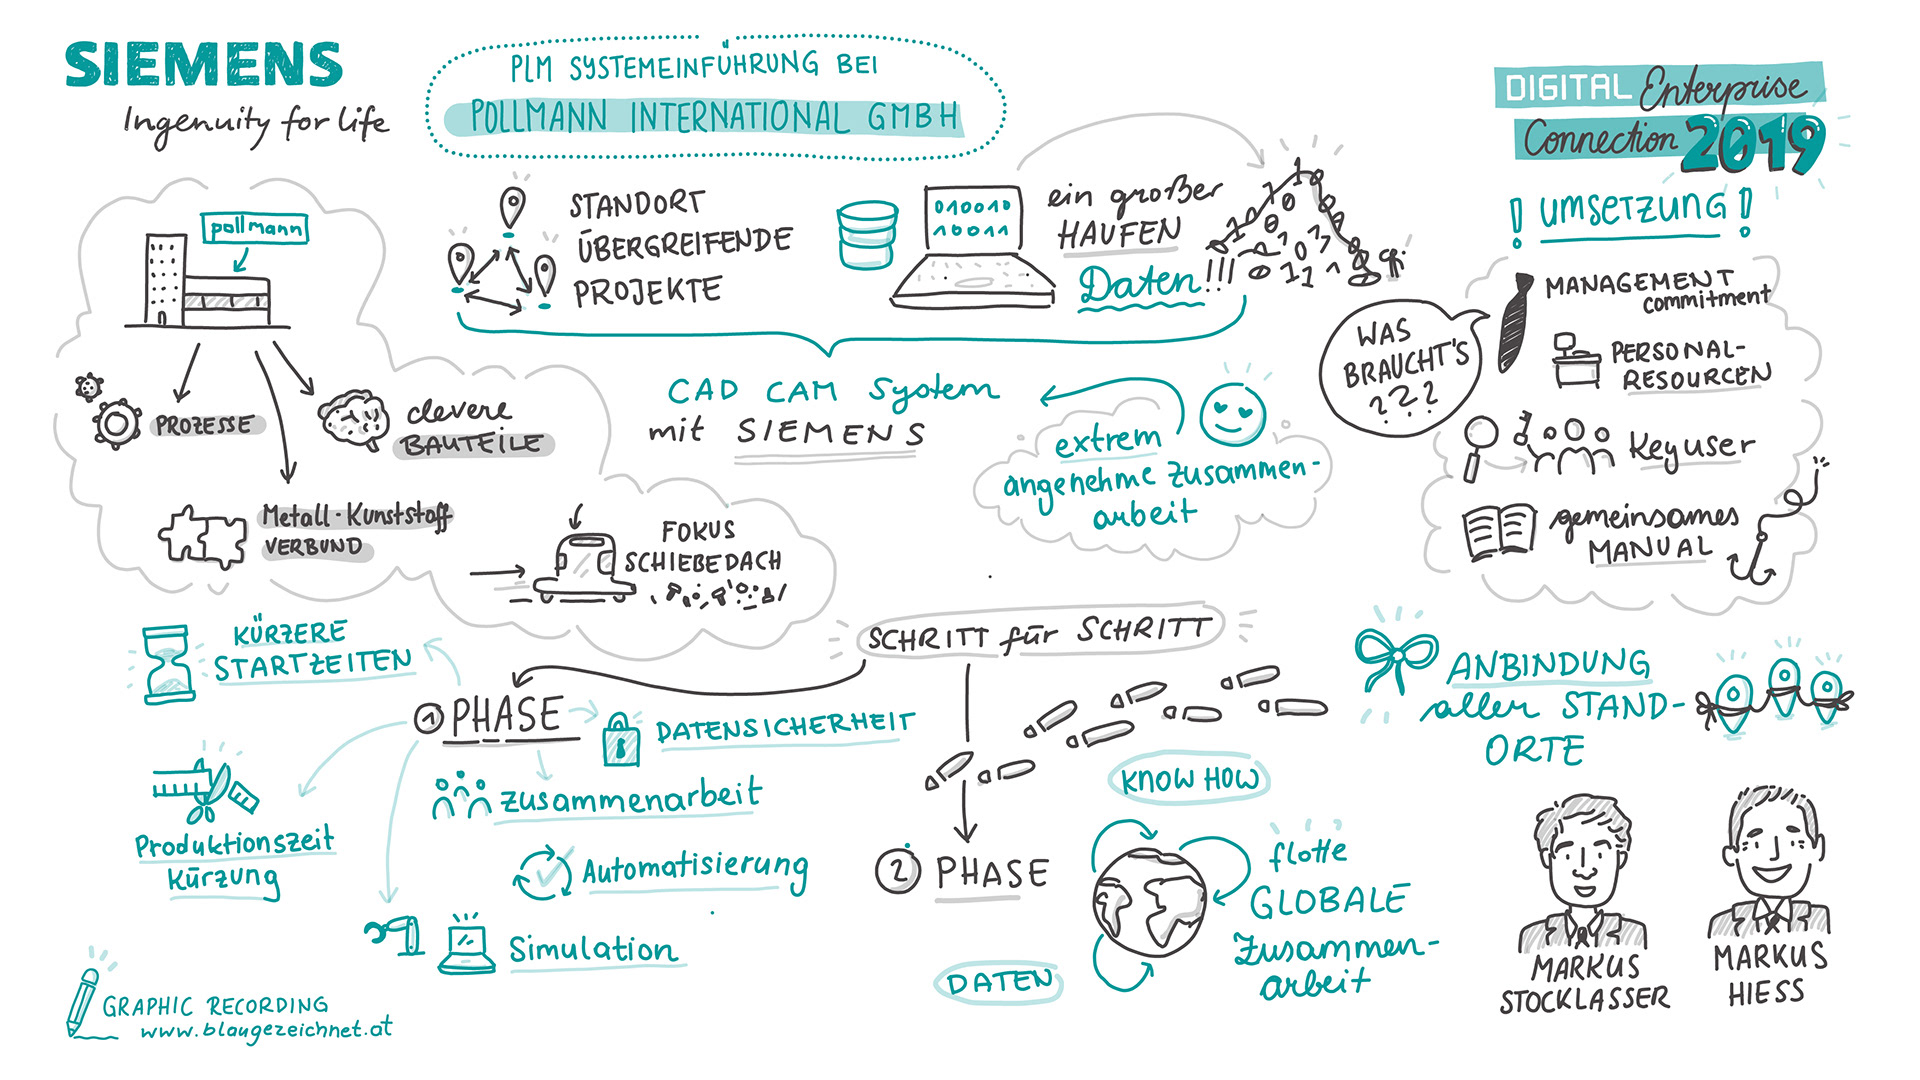 SIEMENS
Ingenuity for life
PLM SYSTEMEINFÜHRUNG BEI
POLLMANN INTERNATIONAL GMBH
DIGITAL Enterprise
Connection 2019
pollmann
PROZESSE
clevere
BAUTEILE
Metall-Kunststoff
VERBUND
FOKUS
SCHIEBEDACH
STANDORT
ÜBERGREIFENDE
PROJEKTE
010010
10011
ein großer
HAUFEN
Daten!!!
CAD CAM System
mit SIEMENS
extrem
angenehme Zusammen-
arbeit
! UMSETZUNG !
WAS
BRAUCHT'S
???
MANAGEMENT
commitment
PERSONAL-
RESOURCEN
Keyuser
gemeinsames
MANUAL
SCHRITT für SCHRITT
1 PHASE
KÜRZERE
STARTZEITEN
DATENSICHERHEIT
Zusammenarbeit
Produktionszeit
Kürzung
Automatisierung
Simulation
2 PHASE
KNOW HOW
DATEN
flotte
GLOBALE
Zusammen-
arbeit
ANBINDUNG
aller STAND-
ORTE
MARKUS
STOCKLASSER
MARKUS
HIESS
GRAPHIC RECORDING
www.blaugezeichnet.at